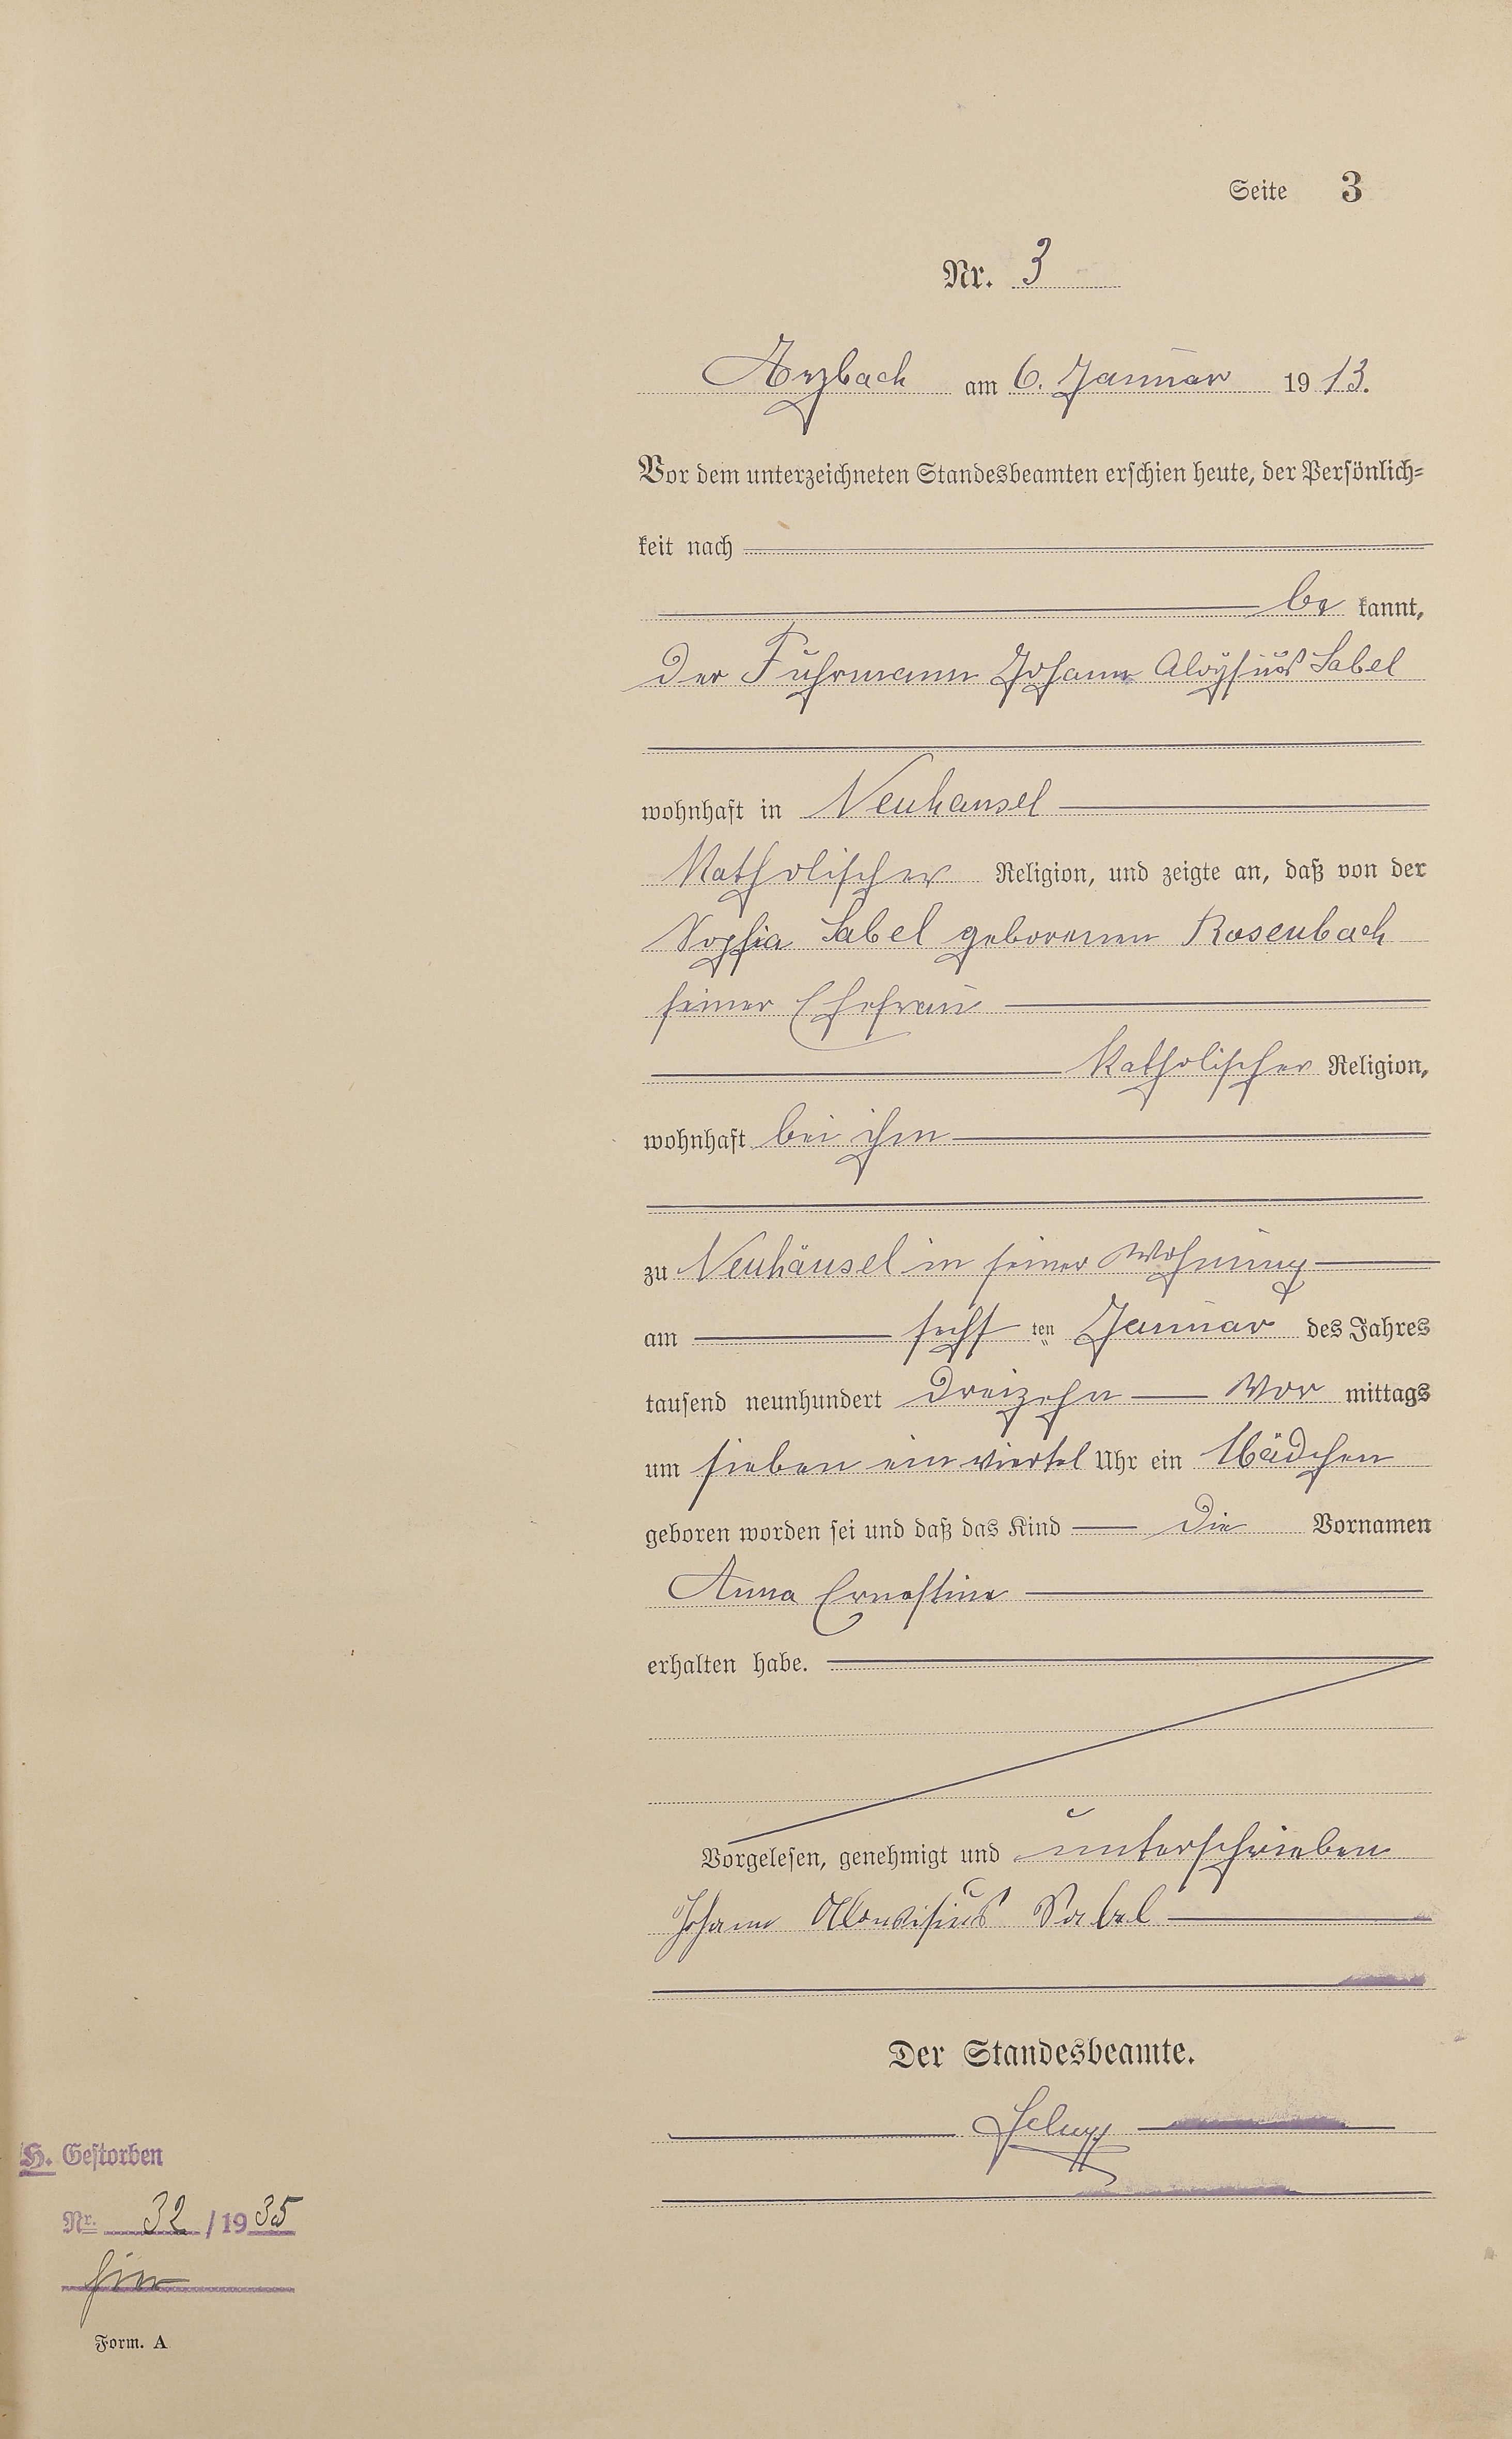 Seite 3
Nr. 3
Arzbach am 6. Januar 1913.
Vor dem unterzeichneten Standesbeamten erschien heute, der Persönlich-
keit nach
be kannt,
der Fuhrmann Johann Aloysius Sabel
wohnhaft in Neuhausel
Katholischer Religion, und zeigte an, daß von der
Sophia Sabel geborenen Rosenbach
seiner Ehefrau
Katholischer Religion,
wohnhaft bei ihm
zu Neuhäusel in seiner Wohnung
am sechs ten Januar des Jahres
tausend neunhundert dreizehn Vor mittags
um sieben ein viertel Uhr ein Mädchen
geboren worden sei und daß das Kind die Vornamen
Anna Ernestine
erhalten habe.
Vorgelesen, genehmigt und unterschrieben
Johann Sabel
Der Standesbeamte.
H. Gestorben
Nr. 32 / 1935
hier
Form. A